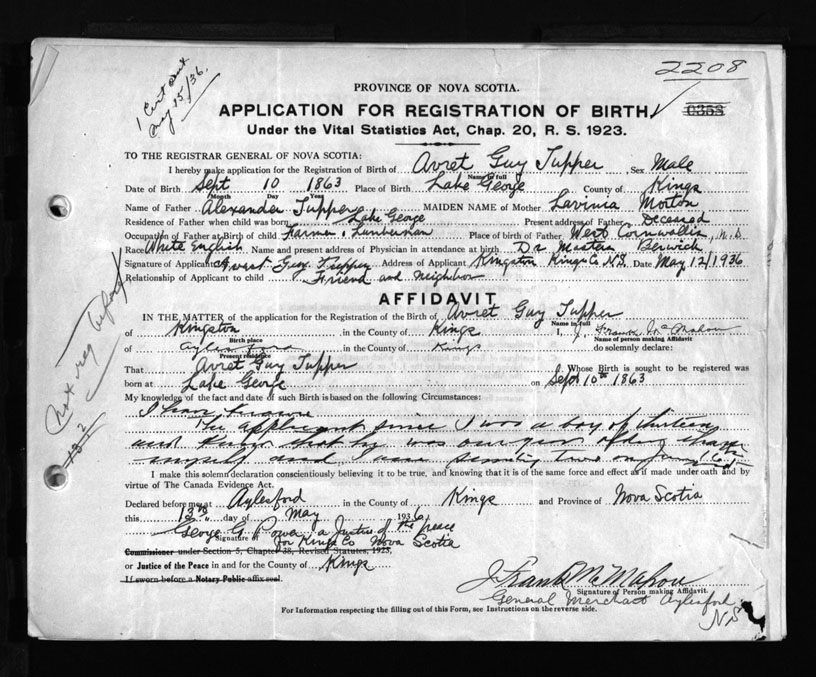 1 Cert sent
May 15/36.
2208
PROVINCE OF NOVA SCOTIA.
APPLICATION FOR REGISTRATION OF BIRTH
0358
Under the Vital Statistics Act, Chap. 20, R. S. 1923.
TO THE REGISTRAR GENERAL OF NOVA SCOTIA:
I hereby make application for the Registration of Birth of Avret Guy Tupper, Sex Male
Name in full
Date of Birth Sept 10 1863 Place of Birth Lake George County of Kings
Month Day Year
Name of Father Alexander Tupper MAIDEN NAME of Mother Lavinia Morton
Residence of Father when child was born, Lake George Present address of Father Deceased
Occupation of Father at Birth of child Farmer & Lumberman Place of birth of Father West Cornwallis, N.S
Race White English Name and present address of Physician in attendance at birth Dr Masters Berwick
Signature of Applicant Avret Guy Tupper Address of Applicant Kingston Kings Co N.S. Date May 12/1936
Relationship of Applicant to child Friend and Neighbor
AFFIDAVIT
IN THE MATTER of the application for the Registration of the Birth of Avret Guy Tupper
Name in full
of Kingston in the County of Kings I, J. Frank McMahon
Birth place Name of person making Affidavit
of Aylesford in the County of Kings do solemnly declare:
Present residence
That Avret Guy Tupper Whose Birth is sought to be registered was
born at Lake George on Sept 10th 1863
My knowledge of the fact and date of such Birth is based on the following Circumstances:
I have known
the applicant since I was a boy of thirteen
and know that he was one year older than
myself and I was seventy two on
I make this solemn declaration conscientiously believing it to be true, and knowing that it is of the same force and effect as if made under oath and by
virtue of The Canada Evidence Act.
Declared before me at Aylesford in the County of Kings and Province of Nova Scotia
this 13th day of May 1936
George G Power a Justice of the peace
Signature of
for Kings Co Nova Scotia
Commissioner under Section 5, Chapter 38, Revised Statutes, 1923.
or Justice of the Peace in and for the County of Kings
If sworn before a Notary Public affix seal.
J Frank McMahon
Signature of Person making Affidavit.
General Merchant Aylesford
NS
For Information respecting the filling out of this Form, see Instructions on the reverse side.
Not reg before